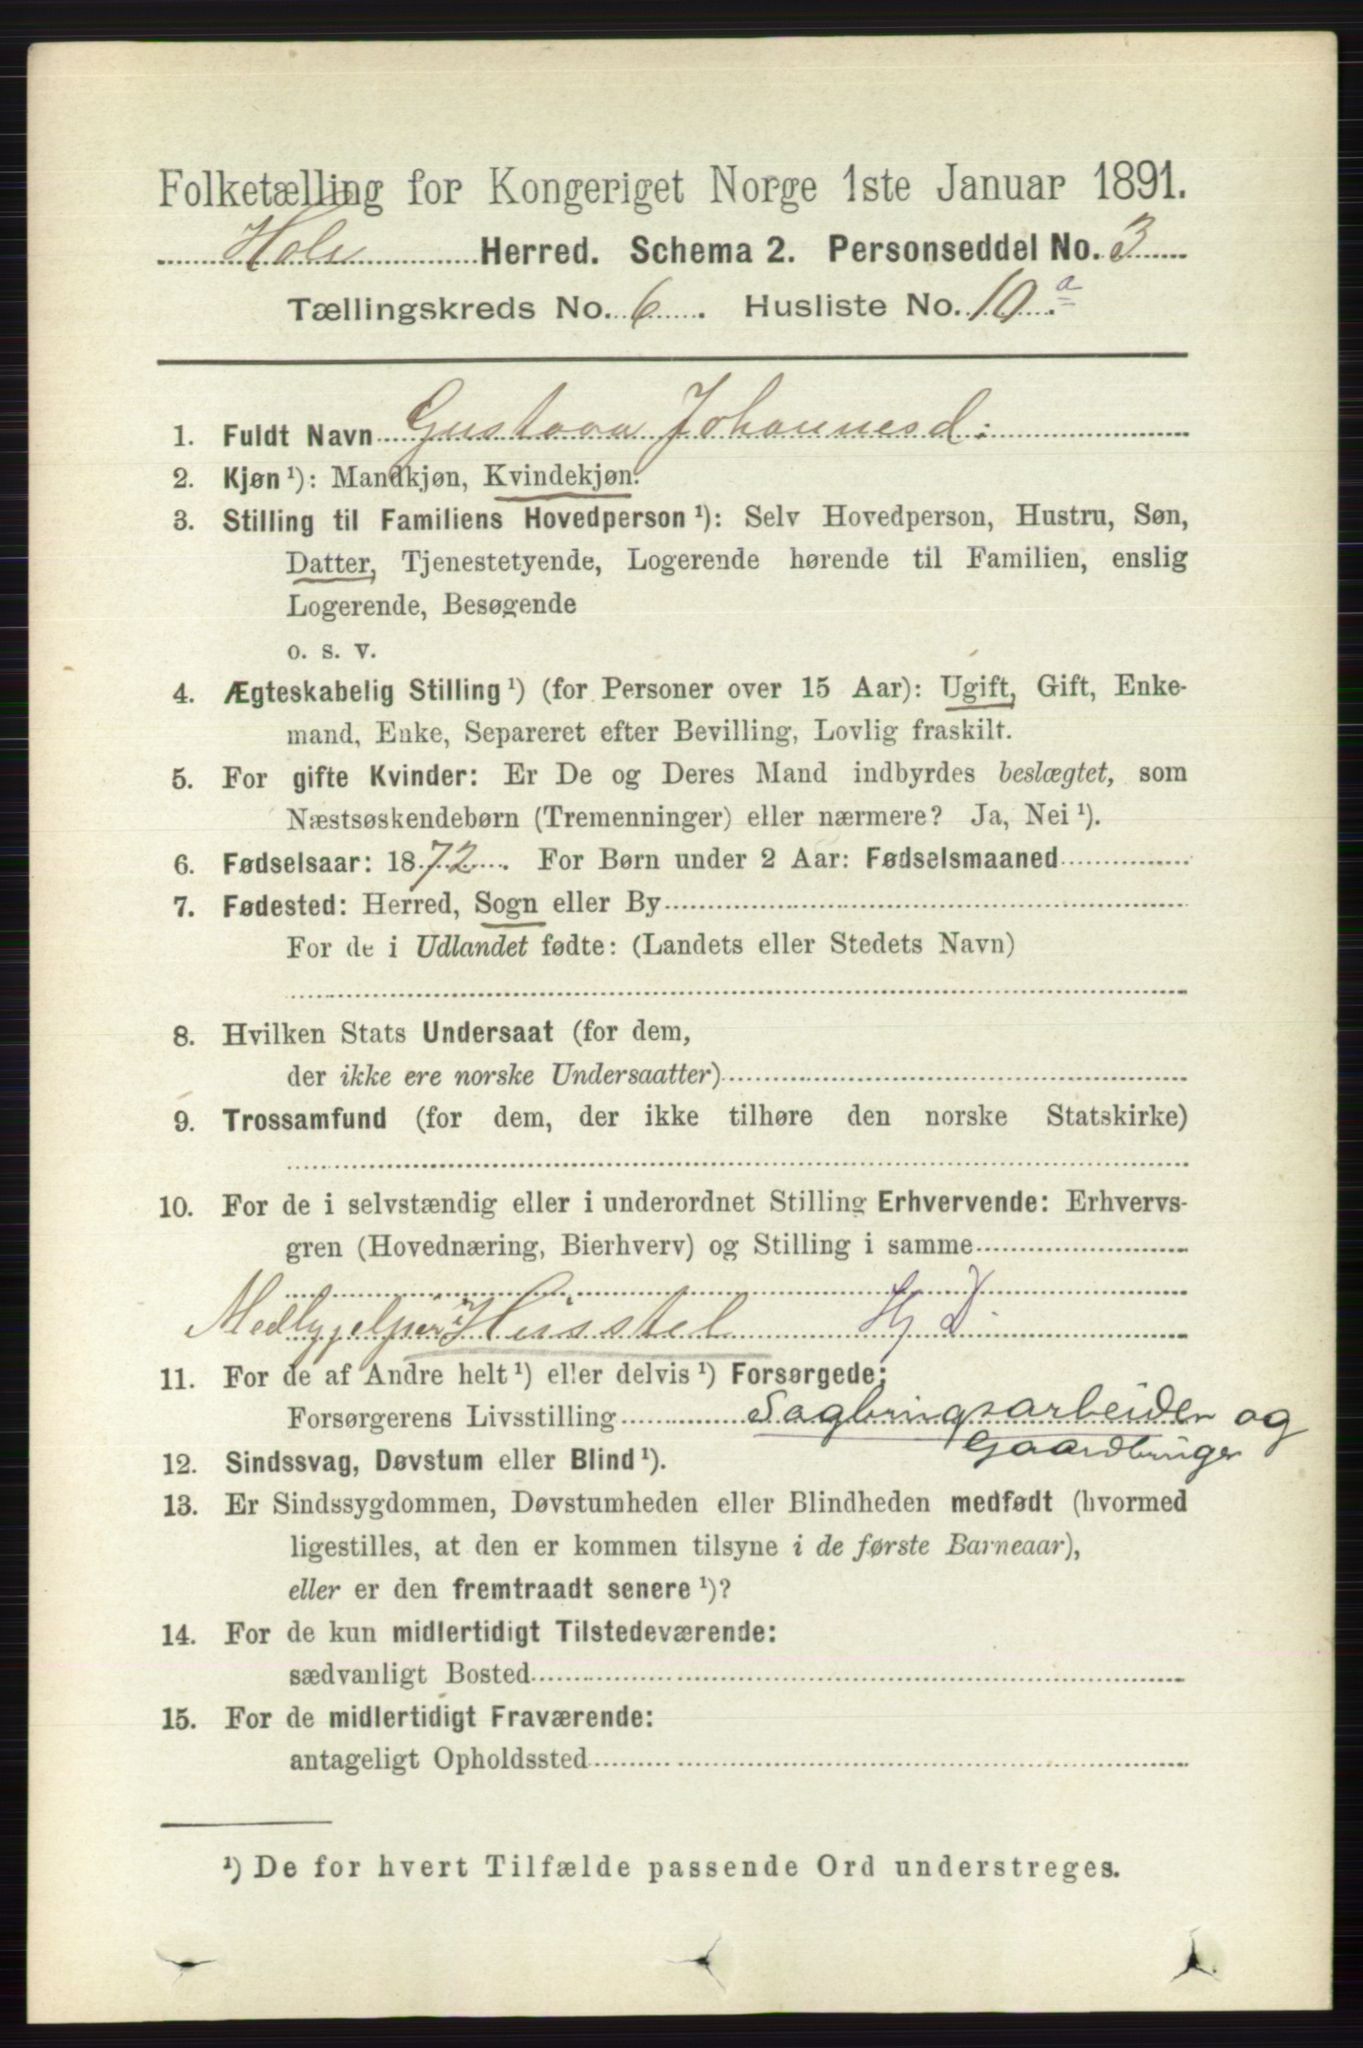 Folketælling for Kongeriget Norge 1ste Januar 1891.
Hole Herred. Schema 2. Personseddel No. 3
Tællingskreds No. 6. Husliste No. 10 a
1. Fuldt Navn Gustava Johannesd:
2. Kjøn ¹): Mandkjøn, Kvindekjøn.
3. Stilling til Familiens Hovedperson ¹): Selv Hovedperson, Hustru, Søn,
Datter, Tjenestetyende, Logerende hørende til Familien, enslig
Logerende, Besøgende
o. s. v.
4. Ægteskabelig Stilling ¹) (for Personer over 15 Aar): Ugift, Gift, Enke-
mand, Enke, Separeret efter Bevilling, Lovlig fraskilt.
5. For gifte Kvinder: Er De og Deres Mand indbyrdes beslægtet, som
Næstsøskendebørn (Tremenninger) eller nærmere? Ja, Nei ¹).
6. Fødselsaar: 1872. For Børn under 2 Aar: Fødselsmaaned
7. Fødested: Herred, Sogn eller By
For de i Udlandet fødte: (Landets eller Stedets Navn)
8. Hvilken Stats Undersaat (for dem,
der ikke ere norske Undersaatter)
9. Trossamfund (for dem, der ikke tilhøre den norske Statskirke)
10. For de i selvstændig eller i underordnet Stilling Erhvervende: Erhvervs-
gren (Hovednæring, Bierhverv) og Stilling i samme
Medhjelper i Husstel Hj D.
11. For de af Andre helt ¹) eller delvis ¹) Forsørgede:
Forsørgerens Livsstilling Sagbrugsarbeider og
Gaardbruger
12. Sindssvag, Døvstum eller Blind ¹).
13. Er Sindssygdommen, Døvstumheden eller Blindheden medfødt (hvormed
ligestilles, at den er kommen tilsyne i de første Barneaar),
eller er den fremtraadt senere ¹)?
14. For de kun midlertidigt Tilstedeværende:
sædvanligt Bosted
15. For de midlertidigt Fraværende:
antageligt Opholdssted
¹) De for hvert Tilfælde passende Ord understreges.